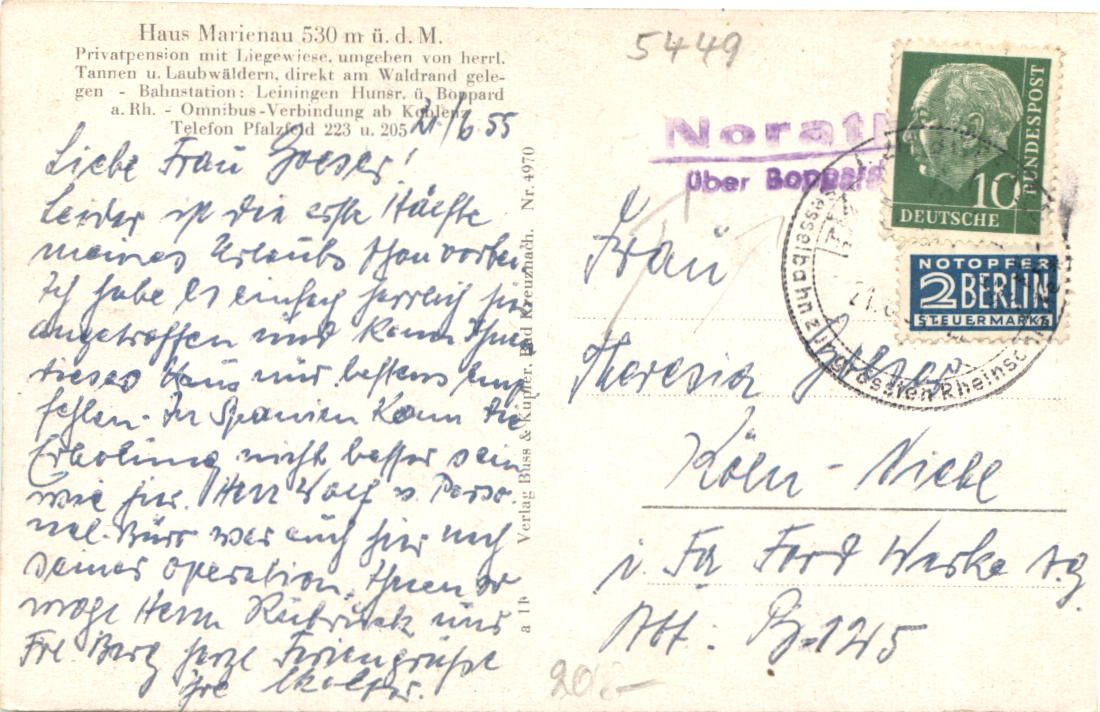 Haus Marienau 530 m ü. d. M.
Privatpension mit Liegewiese, umgeben von herrl.
Tannen u. Laubwäldern, direkt am Waldrand gele-
gen - Bahnstation: Leiningen Hunsr. ü. Boppard
a. Rh. - Omnibus-Verbindung ab Koblenz
Telefon Pfalzfeld 223 u. 205
21/6 55
Liebe Frau
Leider ist die erste Hälfte
meines Urlaubs schon vorbei
Ich habe es einfach herrlich hier
angetroffen und kann Ihnen
dieses Haus nur bestens emp
fehlen. In Spanien kann die
Erholung nicht besser sein
wie hier. Herr Wolf v. Perso-
nal-Büro war auch hier nach
seiner Operation. Ihnen
Herrn und
Frl. Berg herzl. Feriengrüße
Ihre
Verlag Buss & Kupfer, Bad Kreuznach. Nr. 4970
5449
Norath
über Boppard
10
DEUTSCHE
BUNDESPOST
NOTOPFER
2 BERLIN
STEUERMARKE
Frau
Theresia
Köln-Niehl
i. Fa Ford Werke A.G
Abt:
20.-